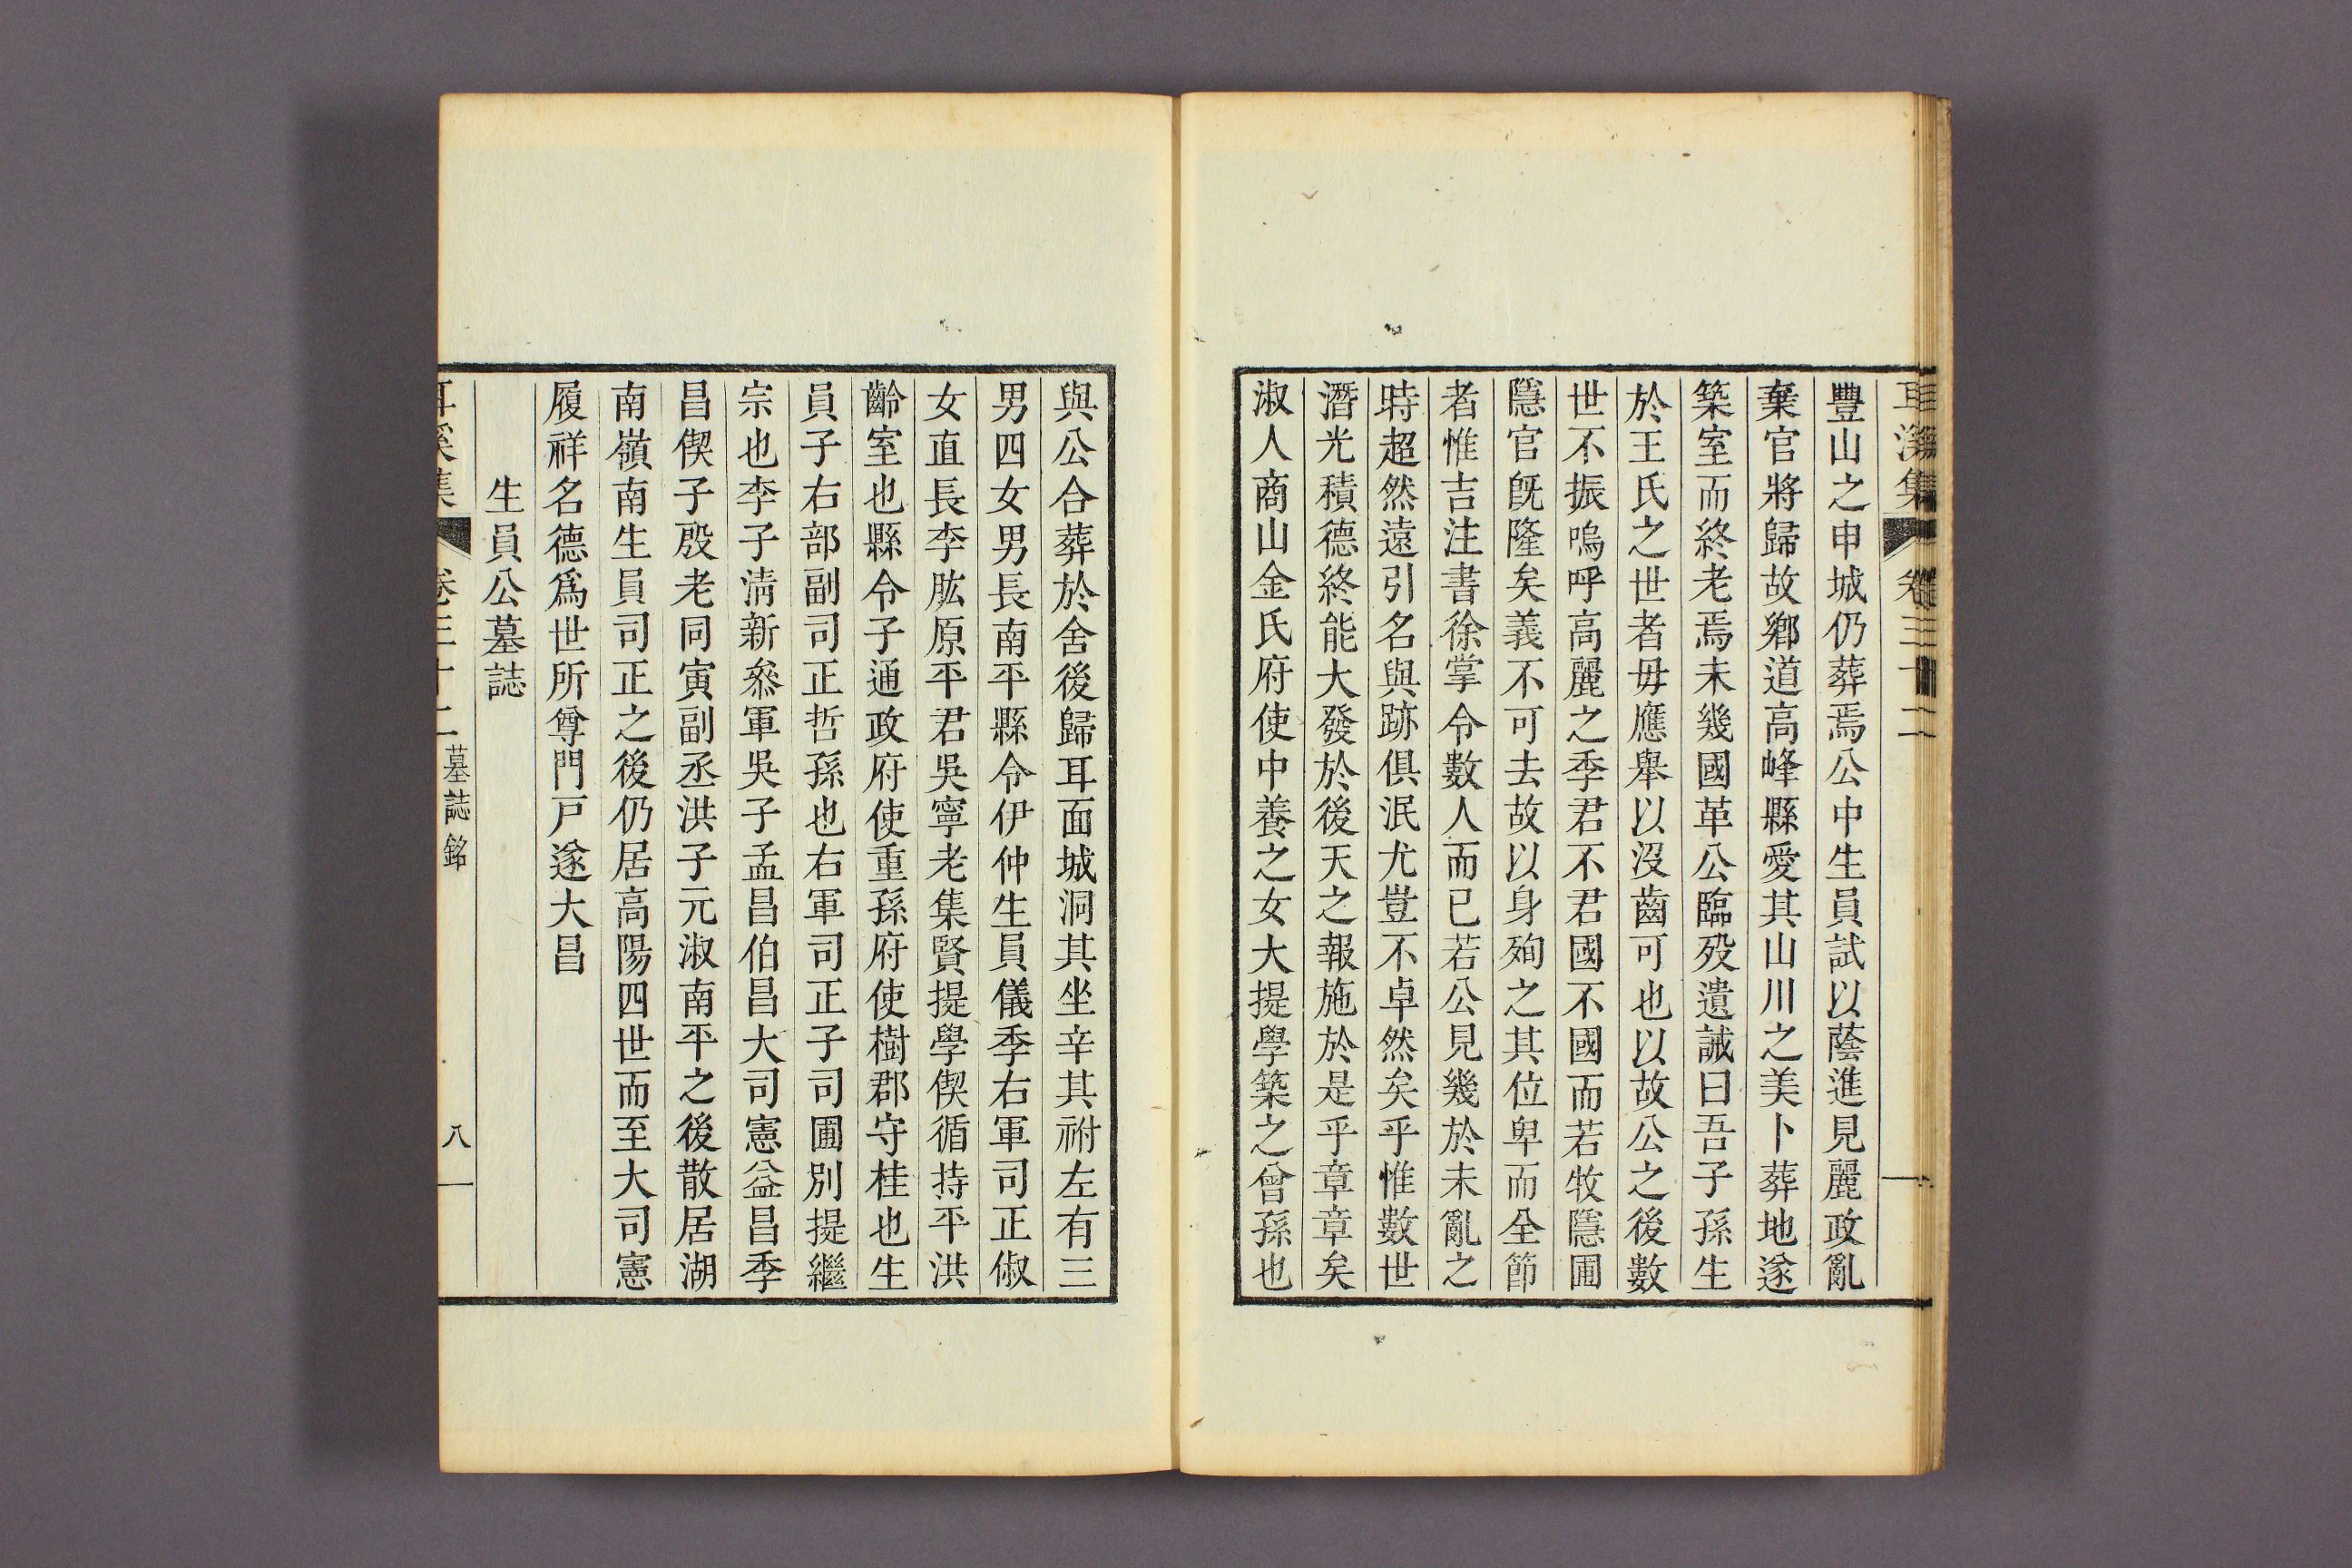 耳溪集 卷三十二
豐山之申城仍葬焉公中生員試以蔭進見麗政亂
棄官將歸故鄕道高峰縣愛其山川之美卜葬地遂
築室而終老焉未幾國革公臨歿遺誡曰吾子孫生
於王氏之世者毋應舉以沒齒可也以故公之後數
世不振嗚呼高麗之季君不君國不國而若牧隱圃
隱官旣隆矣義不可去故以身殉之其位卑而全節
者惟吉注書徐掌令數人而已若公見幾於未亂之
時超然遠引名與跡俱泯尤豈不卓然矣乎惟數世
潛光積德終能大發於後天之報施於是乎章章矣
淑人商山金氏府使中養之女大提學築之曾孫也
與公合葬於舍後歸耳面城洞其坐辛其祔左有三
男四女男長南平縣令伊仲生員儀季右軍司正俶
女直長李肱原平君吳寧老集賢提學偰循持平洪
齡室也縣令子通政府使重孫府使樹郡守桂也生
員子右部副司正哲孫也右軍司正子司圃別提繼
宗也李子淸新叅軍吳子孟昌伯昌大司憲益昌季
昌偰子殷老同寅副丞洪子元淑南平之後散居湖
南嶺南生員司正之後仍居高陽四世而至大司憲
履祥名德爲世所尊門戶遂大昌
生員公墓誌
耳溪集 卷三十二 墓誌銘 八